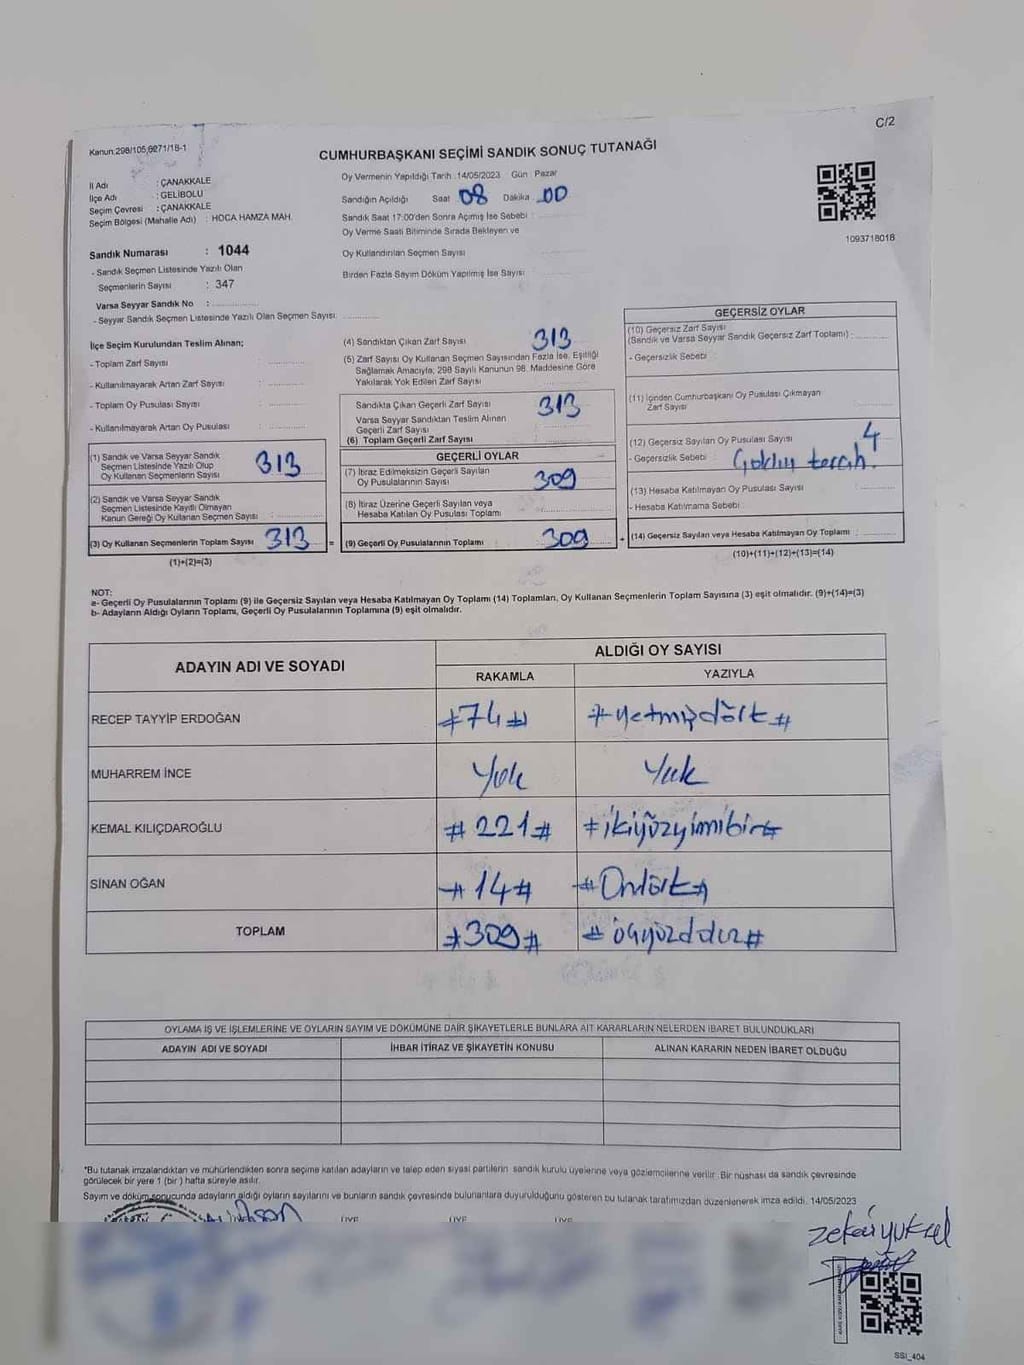 C/2
Kanun:298/105,6271/18-1
CUMHURBAŞKANI SEÇİMİ SANDIK SONUÇ TUTANAĞI
İl Adı : ÇANAKKALE
İlçe Adı : GELİBOLU
Seçim Çevresi : ÇANAKKALE
Seçim Bölgesi (Mahalle Adı) : HOCA HAMZA MAH.
Oy Vermenin Yapıldığı Tarih :14/05/2023 Gün : Pazar
Sandığın Açıldığı Saat 08 Dakika 00
Sandık Saat 17:00'den Sonra Açımış İse Sebebi :
Oy Verme Saati Bitiminde Sırada Bekleyen ve
Oy Kullandırılan Seçmen Sayısı
Birden Fazla Sayım Döküm Yapılmış İse Sayısı
1093718018
Sandık Numarası : 1044
- Sandık Seçmen Listesinde Yazılı Olan
Seçmenlerin Sayısı : 347
Varsa Seyyar Sandık No :
- Seyyar Sandık Seçmen Listesinde Yazılı Olan Seçmen Sayısı:
İlçe Seçim Kurulundan Teslim Alınan;
- Toplam Zarf Sayısı :
- Kullanılmayarak Artan Zarf Sayısı :
- Toplam Oy Pusulası Sayısı :
- Kullanılmayarak Artan Oy Pusulası :
(1) Sandık ve Varsa Seyyar Sandık
Seçmen Listesinde Yazılı Olup
Oy Kullanan Seçmenlerin Sayısı 313
(2) Sandık ve Varsa Seyyar Sandık
Seçmen Listesinde Kayıtlı Olmayan
Kanun Gereği Oy Kullanan Seçmen Sayısı :
(3) Oy Kullanan Seçmenlerin Toplam Sayısı 313
(1)+(2)=(3)
(4) Sandıktan Çıkan Zarf Sayısı 313
(5) Zarf Sayısı Oy Kullanan Seçmen Sayısından Fazla İse, Eşitliği
Sağlamak Amacıyla, 298 Sayılı Kanunun 98. Maddesine Göre
Yakılarak Yok Edilen Zarf Sayısı
Sandıkta Çıkan Geçerli Zarf Sayısı 313
Varsa Seyyar Sandıktan Teslim Alınan
Geçerli Zarf Sayısı
(6) Toplam Geçerli Zarf Sayısı
GEÇERLİ OYLAR
(7) İtiraz Edilmeksizin Geçerli Sayılan
Oy Pusulalarının Sayısı 309
(8) İtiraz Üzerine Geçerli Sayılan veya
Hesaba Katılan Oy Pusulası Toplamı
= (9) Geçerli Oy Pusulalarının Toplamı 309 +
GEÇERSİZ OYLAR
(10) Geçersiz Zarf Sayısı
(Sandık ve Varsa Seyyar Sandık Geçersiz Zarf Toplamı) -
- Geçersizlik Sebebi :
(11) İçinden Cumhurbaşkanı Oy Pusulası Çıkmayan
Zarf Sayısı
(12) Geçersiz Sayılan Oy Pusulası Sayısı 4
- Geçersizlik Sebebi : tercih
(13) Hesaba Katılmayan Oy Pusulası Sayısı
- Hesaba Katılmama Sebebi :
(14) Geçersiz Sayılan veya Hesaba Katılmayan Oy Toplamı :
(10)+(11)+(12)+(13)=(14)
NOT:
a- Geçerli Oy Pusulalarının Toplamı (9) ile Geçersiz Sayılan veya Hesaba Katılmayan Oy Toplamı (14) Toplamları, Oy Kullanan Seçmenlerin Toplam Sayısına (3) eşit olmalıdır. (9)+(14)=(3)
b- Adayların Aldığı Oyların Toplamı, Geçerli Oy Pusulalarının Toplamına (9) eşit olmalıdır.
ADAYIN ADI VE SOYADI ALDIĞI OY SAYISI
RAKAMLA YAZIYLA
RECEP TAYYİP ERDOĞAN #74# #yetmişdört#
MUHARREM İNCE Yok Yok
KEMAL KILIÇDAROĞLU #221# #ikiyüzyirmibir#
SİNAN OĞAN #14# #Ondört#
TOPLAM #309# #üçyüzdokuz#
OYLAMA İŞ VE İŞLEMLERİNE VE OYLARIN SAYIM VE DÖKÜMÜNE DAİR ŞİKAYETLERLE BUNLARA AİT KARARLARIN NELERDEN İBARET BULUNDUKLARI
ADAYIN ADI VE SOYADI İHBAR İTİRAZ VE ŞİKAYETİN KONUSU ALINAN KARARIN NEDEN İBARET OLDUĞU
*Bu tutanak imzalandıktan ve mühürlendikten sonra seçime katılan adayların ve talep eden siyasi partilerin sandık kurulu üyelerine veya gözlemcilerine verilir. Bir nüshası da sandık çevresinde
görülecek bir yere 1 (bir) hafta süreyle asılır.
Sayım ve döküm sonucunda adayların aldığı oyların sayılarını ve bunların sandık çevresinde bulunanlara duyurulduğunu gösteren bu tutanak tarafımızdan düzenlenerek imza edildi. 14/05/2023
ÜYE ÜYE ÜYE
zekai yüksel
SSI_404